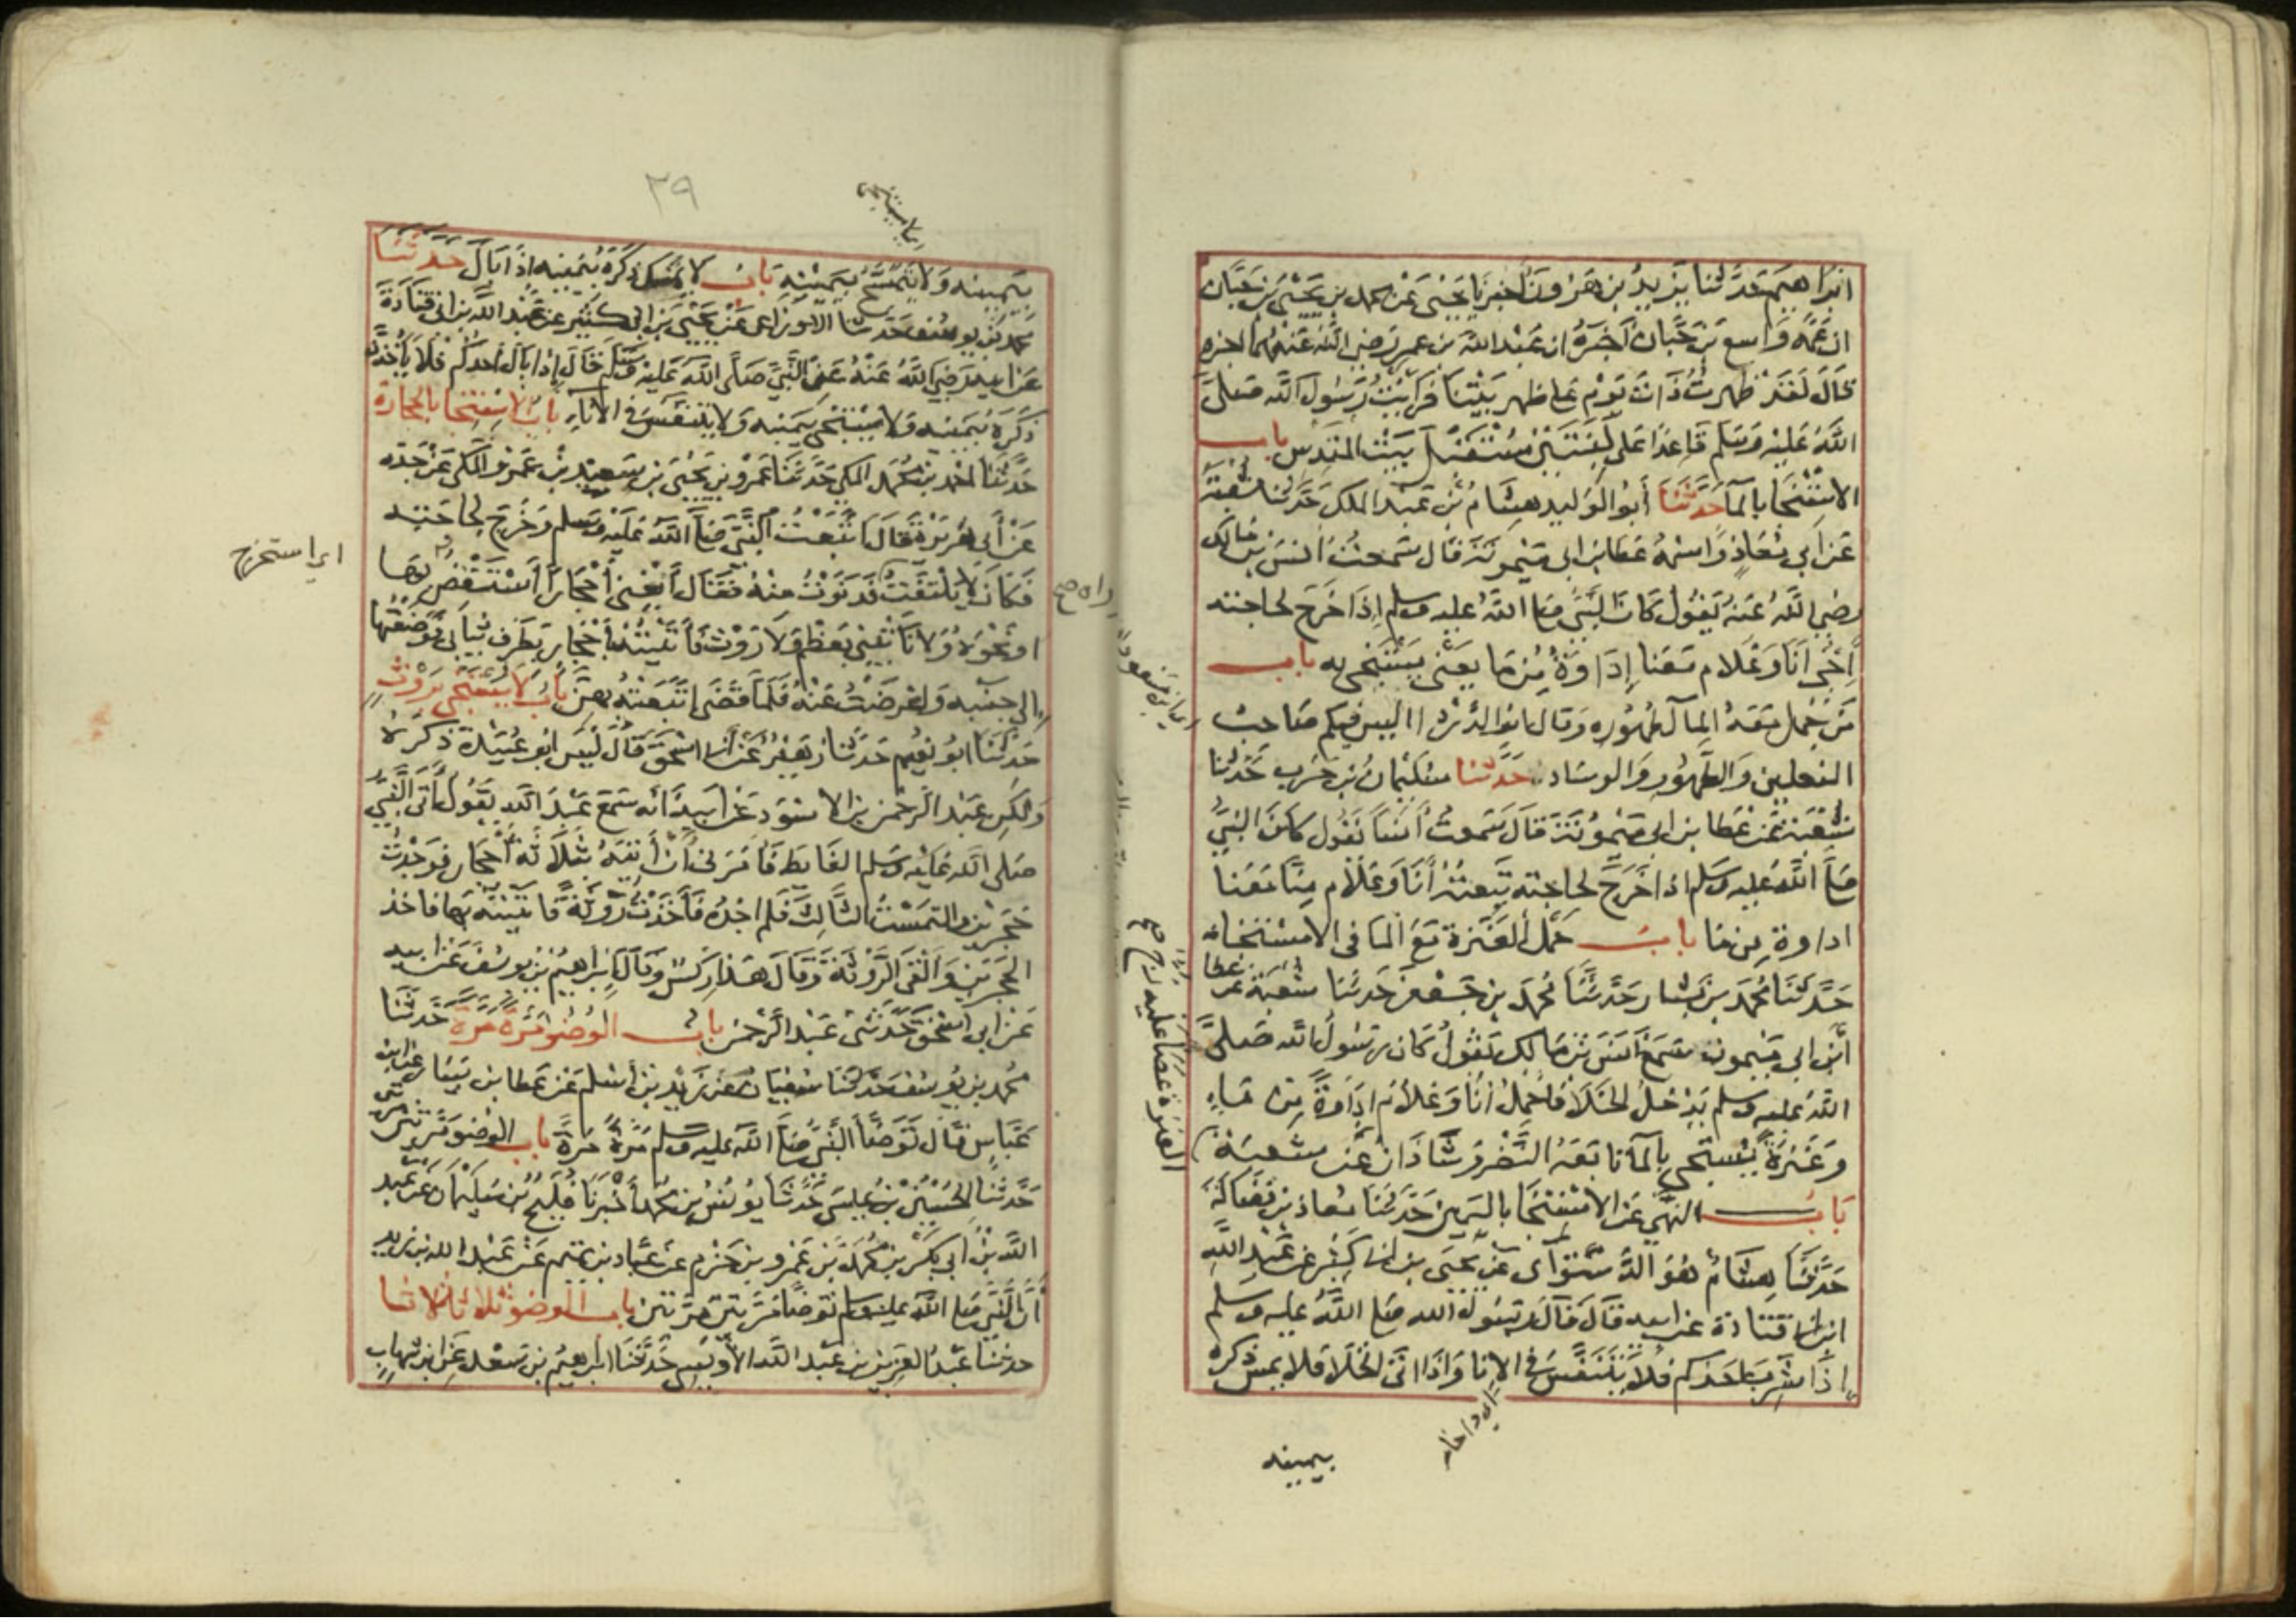 ابراهيم حدثنا يزيد بن هرون أخبرنا يحيى عن محمد بن يحيى بن حبان
ان عمه واسع بن حبان اخبره ان عبد الله بن عمر رضي الله عنهما اخبره
قال لقد ظهرت ذات يوم على ظهر بيتنا فرأيت رسول الله صلى
الله عليه وسلم قاعدا على لبنتين مستقبل بيت المقدس باب
الاستنجا بالما حدثنا أبو الوليد هشام بن عبد الملك حدثنا شعبة
عن ابي معاذ واسمه عطا بن ابي ميمونة قال سمعت انس بن مالك
رضي الله عنه يقول كان النبي صلى الله عليه وسلم إذا خرج لحاجته
أجي أنا وغلام معنا إداوة من ما يعني يستنجي به باب
من حمل معه الما لطهوره وقال ابو الدردا اليس فيكم صاحب
النعلين والطهور والوساد حدثنا سليمان بن حرب حدثنا
شعبة عن عطا بن ابي ميمونة قال سمعت أنسا يقول كان النبي
صلى الله عليه وسلم اذا خرج لحاجته تبعته أنا وغلام منا معنا
اداوة من ما باب حمل العنزة مع الما في الاستنجاء
حدثنا محمد بن بشار حدثنا محمد بن جعفر حدثنا شعبة عن عطا
ابن ابي ميمونة سمع انس بن مالك يقول كان رسول الله صلى
الله عليه وسلم يدخل الخلا فاحمل أنا وغلام إداوة من ماء
وعنزة يستنجي بالما تابعه النضر وشاذان عن شعبة
باب النهي عن الاستنجا باليمين حدثنا معاذ بن فضالة
حدثنا هشام هو الدستوائ عن يحيى بن ابي كثير عن عبد الله
ابن ابي قتادة عن ابيه قال قال رسول الله صلى الله عليه وسلم
إذا شرب احدكم فلا يتنفس في الانا واذا اتى الخلا فلا يمس ذكره
بيمينه
العنزة عصا عليه زج صح
٢٩
اي لا يستنجي
بيمينه ولا يتمسح بيمينه باب لا يمسك ذكره بيمينه اذا بال حدثنا
محمد بن يوسف حدثنا الاوزاعي عن يحيى بن ابي كثير عن عبد الله بن ابي قتادة
عن ابيه رضي الله عنه عن النبي صلى الله عليه وسلم قال إذا بال احدكم فلا يأخذن
ذكره بيمينه ولا يستنجي بيمينه ولا يتنفس في الاناء باب الاستنجا بالحجارة
حدثنا احمد بن محمد المكي حدثنا عمرو بن يحيى بن سعيد بن عمرو المكي عن جده
عن أبي هريرة قال اتبعت النبي صلى الله عليه وسلم وخرج لحاجته
فكان لا يلتفت فدنوت منه فقال أبغني أحجارا أستنفض بها
او نحوه ولا تأتني بعظم ولا روث فأتيته بأحجار بطرف ثيابي فوضعتها
إلى جنبه واعرضت عنه فلما قضى اتبعته بهن باب لا يستنجي بروث
حدثنا ابو نعيم حدثنا زهير عن أبي اسحق قال ليس ابو عبيدة ذكره
ولكن عبد الرحمن بن الاسود عن ابيه أنه سمع عبد الله يقول أتى النبي
صلى الله عليه وسلم الغايط فأمرني أن أتيه بثلاثة أحجار فوجدت
حجرين والتمست الثالث فلم اجده فأخذت روثة فأتيته بها فاخذ
الحجرين وألقى الروثة وقال هذا ركس وقال ابراهيم بن يوسف عن ابيه
عن ابي اسحق حدثني عبد الرحمن باب الوضو مرة مرة حدثنا
محمد بن يوسف حدثنا سفيان عن زيد بن أسلم عن عطا بن يسار عن ابن
عباس قال توضأ النبي صلى الله عليه وسلم مرة مرة باب الوضو مرتين مرتين
حدثنا الحسين بن عيسى حدثنا يونس بن محمد أخبرنا فليح بن سليمان عن عبد
الله بن أبي بكر بن محمد بن عمرو بن حزم عن عباد بن تميم عن عبد الله بن زيد
أن النبي صلى الله عليه وسلم توضأ مرتين مرتين باب الوضو ثلاثا ثلاثا
حدثنا عبد العزيز بن عبد الله الأويسي حدثنا ابراهيم بن سعد عن ابن شهاب
اي استخرج